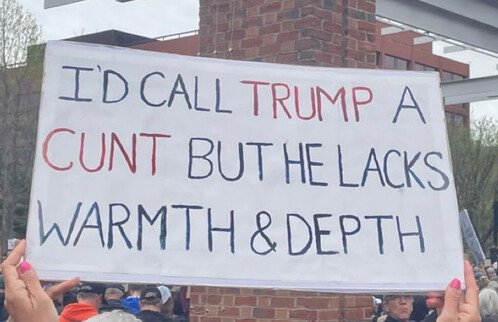 I'D CALL TRUMP A
CUNT BUT HE LACKS
WARMTH & DEPTH